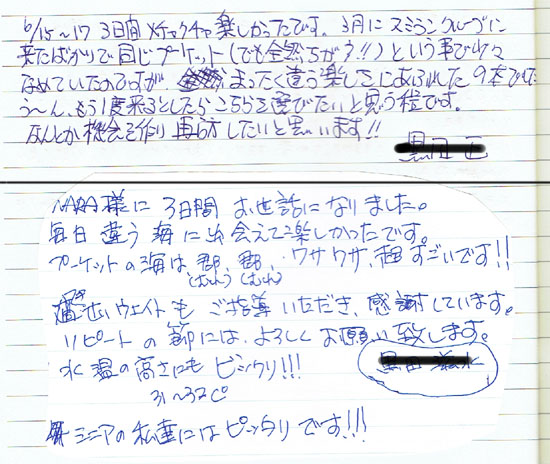 6/15~17 3日間 メチャクチャ楽しかったです。3月にスミランクルーズに
来たばかりで同じプーケット(でも全然ちがう!!)という事で少々
なめていたのですが、まったく違う楽しさにあふれた9本でした
う~ん、もう1度来るとしたらこちらを選びたいと思う位です。
なんとか機会を作り再ら方したいと思います!!
NARA様に3日間お世話になりました。
毎日違う海に出会えて楽しかったです。
プーケットの海は群群、ワサワサ、超すごいです!!
(むれ) (むれ)
ウェイトもご指導いただき、感謝しています。
リピートの節には、よろしくお願い致します。
水温の高さにもビックリ!!!
31~32℃
シニアの私達にはピッタリです!!!